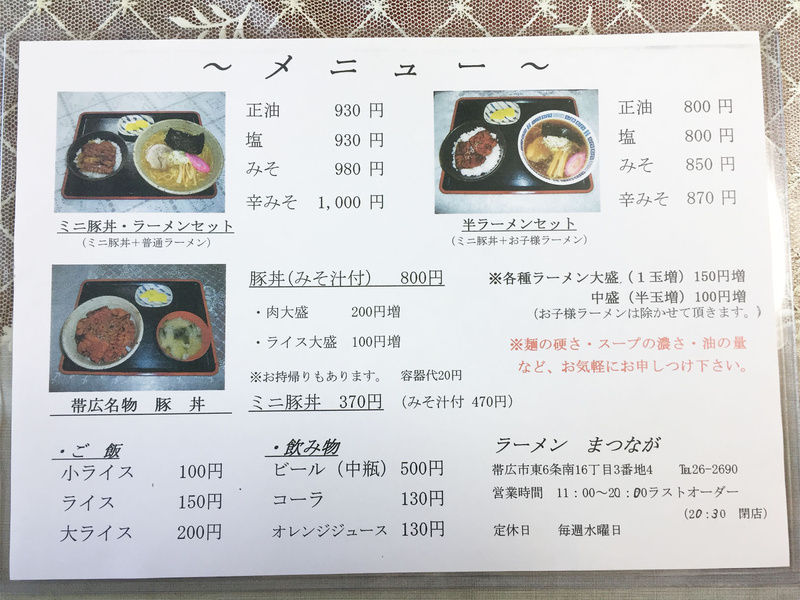 ～ メ ニ ュ ー ～
正油 930 円
塩 930 円
みそ 980 円
辛みそ 1,000 円
ミニ豚丼・ラーメンセット
（ミニ豚丼＋普通ラーメン）
正油 800 円
塩 800 円
みそ 850 円
辛みそ 870 円
半ラーメンセット
（ミニ豚丼＋お子様ラーメン）
豚丼(みそ汁付) 800円
・肉大盛 200円増
・ライス大盛 100円増
※お持帰りもあります。 容器代20円
帯広名物 豚 丼
ミニ豚丼 370円 （みそ汁付 470円）
※各種ラーメン大盛（１玉増）150円増
中盛（半玉増）100円増
（お子様ラーメンは除かせて頂きます。）
※麺の硬さ・スープの濃さ・油の量
など、お気軽にお申しつけ下さい。
・ご 飯
小ライス 100円
ライス 150円
大ライス 200円
・飲み物
ビール（中瓶）500円
コーラ 130円
オレンジジュース 130円
ラーメン まつなが
帯広市東6条南16丁目3番地4 ℡26-2690
営業時間 11：00～20：00ラストオーダー
（20:30 閉店）
定休日 毎週水曜日